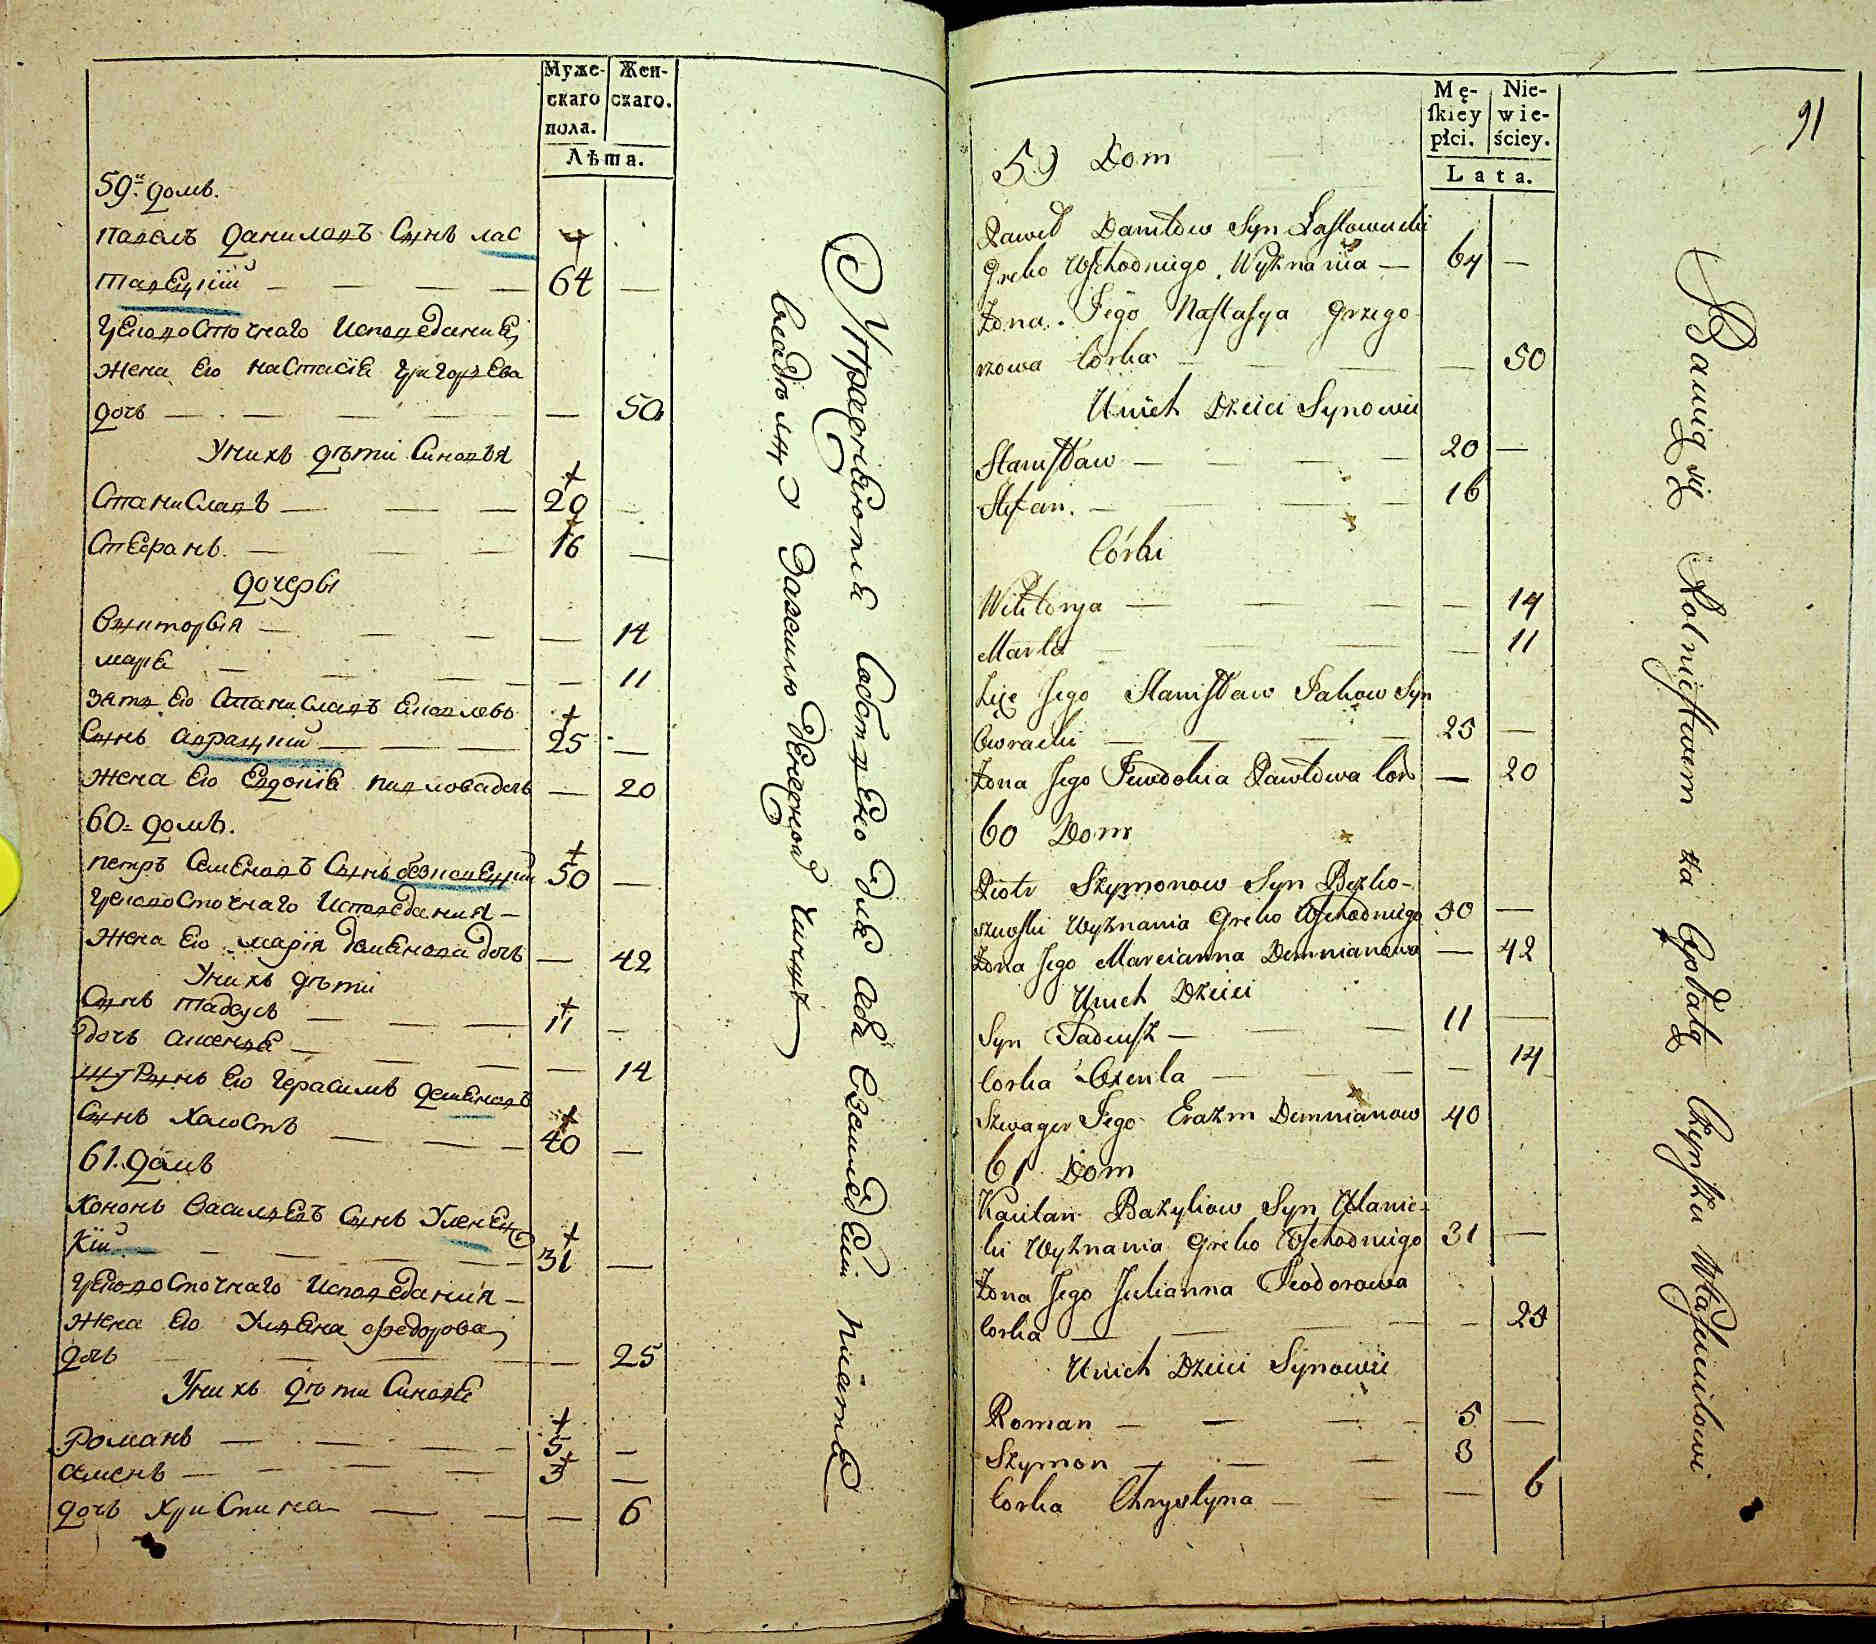 Муже-
скаго
пола.
Жен-
скаго.
Лѣта.
59й домъ.
Павелъ Даниловъ Сынъ лас
товецкій — 64 —
Грековосточнаго Исповеданиѣ
Жена Его Настасія Григорьева
дочь — — 50
У нихъ дѣти Синовья
Станиславъ — 20 —
Стефанъ. — 16 —
дочеры
Викторыя — — 14
марѣ — — 11
зять Его Станиславъ
Сынъ — 25 —
Жена Его Евдокія Павловадочь — 20
60- домъ.
петръ Семеновъ Сынъ 50 —
Грековосточнаго Исповеданія —
Жена Его Марія Деменова дочь — 42
У нихъ дѣти
Сынъ Тадеусъ — 11 —
дочь — — 14
шуринъ Его Герасимъ Деменовъ
Сынъ Холостъ — 40 —
61. домъ
Кононъ Васильевъ Сынъ
кій — 31 —
Грековосточнаго Исповеданія —
Жена Его Федорова
дочь — — 25
У нихъ дѣти Синовѣ
Романъ — 5 —
Семенъ — 3 —
дочь Христина — — 6
Упражняются для себя
91
Mę-
ſkiey
płci.
Nie-
wie-
ściey.
Lata.
59 Dom
Paweł Daniłow Syn Łastowiecki
Greko Wschodniego Wyznania — 64 —
Żona Jego Nastasya Grzego
rzowa Corka — — 50
U nich Dzieci Synowie
Stanisław — 20 —
Stefan. — 16
Córki
Wiktorya — — 14
Marta — — 11
Zięć Jego Stanisław Jakow Syn
— 25 —
Żona Jego Fewdokia Pawłowa Cor — 20
60 Dom
Piotr Szymonow Syn
Wyznania Greko Wschodniego 50 —
Żona Jego Marcianna Demnianowa — 42
U nich Dzieci
Syn Tadeusz — 11 —
Corka Oxenia — — 14
Szwager Jego Erazm Demnianow 40
61 Dom
Bazyliow Syn Ulanic-
ki Wyznania Greko Wschodniego 31 —
Żona Jego Julianna Teodorowa
Corka — — 25
U nich Dzieci Synowie
Roman — 5 —
Szymon — 3
Corka Chrystyna — — 6
Bawią się Rolnictwem za Opłatą Czynszu Właścicielowi